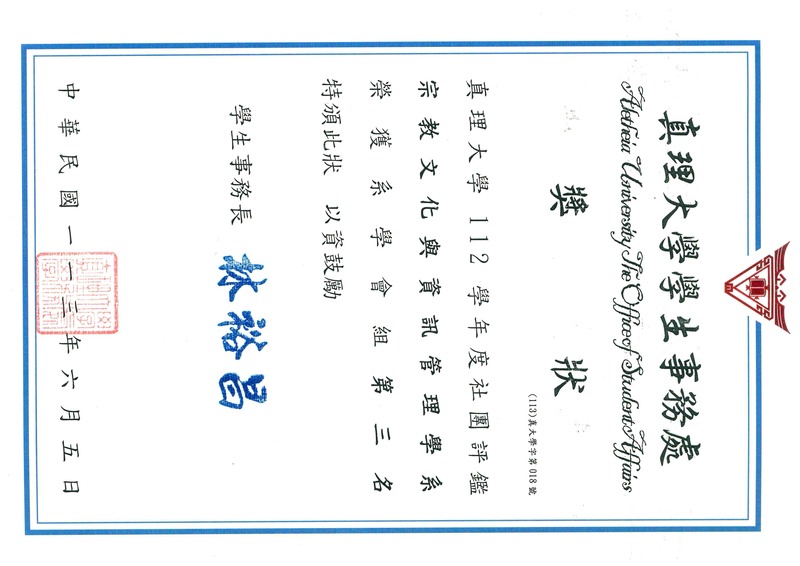 真理大學學生事務處
Aletheia University The Office of Student Affairs
獎狀
(113)真大學字第018號
真理大學112學年度社團評鑑
宗教文化與資訊管理學系
榮獲系學會組第三名
特頒此狀 以資鼓勵
學生事務長 林裕昌
中華民國一一三年六月五日